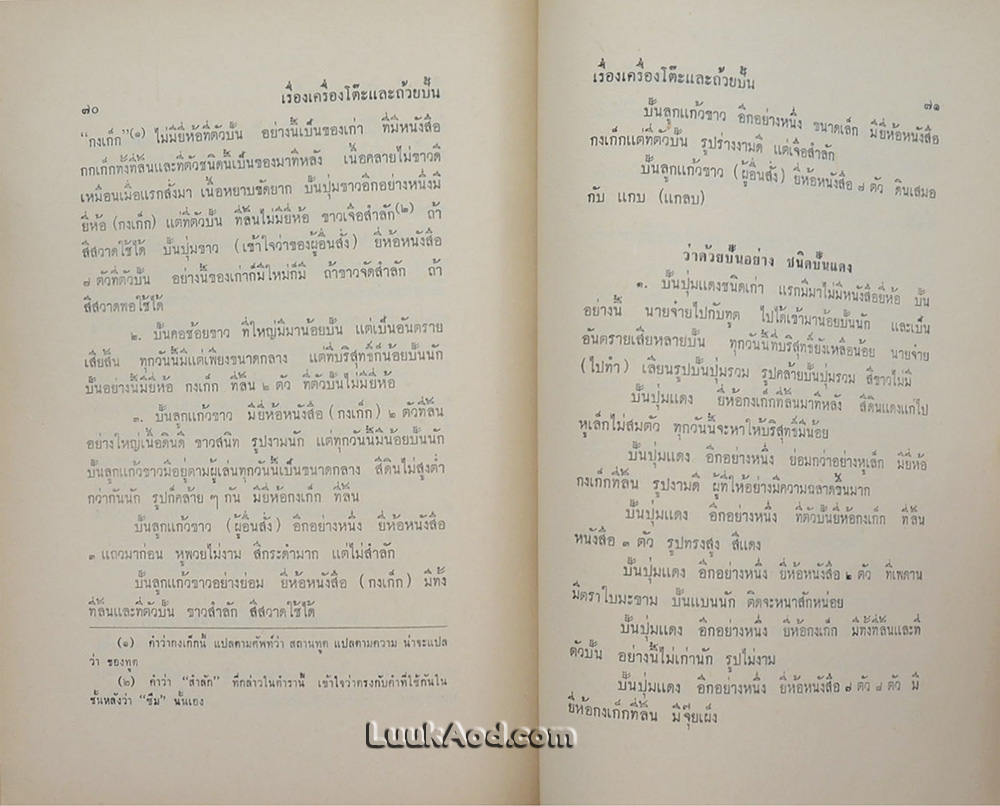 ๗๐
เรื่องเครื่องโต๊ะและถ้วยปั้น
“กงเก็ก”(๑) ไม่มียี่ห้อที่ตัวปั้น อย่างนี้เป็นของเก่า ที่มีหนังสือ
กกเก็กทั้งที่ลิ้นและที่ตัวชนิดนี้เป็นของมาทีหลัง เนื้อคลายไม่ขาวดี
เหมือนเมื่อแรกสั่งมา เนื้อหยาบขัดยาก ปั้นปุ่มขาวอีกอย่างหนึ่งมี
ยี่ห้อ (กงเก็ก) แต่ที่ตัวปั้น ที่ลิ้นไม่มียี่ห้อ ขาวเจือสำลัก(๒) ถ้า
สีสวาดใช้ได้ ปั้นปุ่มขาว (เข้าใจว่าของผู้อื่นสั่ง) ยี่ห้อหนังสือ
๘ ตัวที่ตัวปั้น อย่างนี้ของเก่าก็มีใหม่ก็มี ถ้าขาวจัดสำลัก ถ้า
สีสวาดพอใช้ได้
๒. ปั้นคอช้อยขาว ที่ใหญ่มีมาน้อยปั้น แต่เป็นอันตราย
เสียสิ้น ทุกวันนี้มีแต่เพียงขนาดกลาง แต่ที่บริสุทธิ์ก็น้อยปั้นนัก
ปั้นอย่างนี้มียี่ห้อ กงเก็ก ที่ลิ้น ๒ ตัว ที่ตัวปั้นไม่มียี่ห้อ
๓. ปั้นลูกแก้วขาว มียี่ห้อหนังสือ (กงเก็ก) ๒ ตัวที่ลิ้น
อย่างใหญ่เนื้อดินดี ขาวสนิท รูปงามนัก แต่ทุกวันนี้มีน้อยปั้นนัก
ปั้นลูกแก้วขาวมีอยู่ตามผู้เล่นทุกวันนี้เป็นขนาดกลาง สีดินไม่สูงต่ำ
กว่ากันนัก รูปก็คล้าย ๆ กัน มียี่ห้อกงเก็ก ที่ลิ้น
ปั้นลูกแก้วขาว (ผู้อื่นสั่ง) อีกอย่างหนึ่ง ยี่ห้อหนังสือ
๓ แถวมาก่อน หูพวยไม่งาม สีกระดำมาก แต่ไม่สำลัก
ปั้นลูกแก้วขาวอย่างย่อม ยี่ห้อหนังสือ (กงเก็ก) มีทั้ง
ที่ลิ้นและที่ตัวปั้น ขาวสำลัก สีสวาดใช้ได้
(๑) คำว่ากงเก็กนี้ แปลตามศัพท์ว่า สถานทูต แปลตามความ น่าจะแปล
ว่า ของทูต
(๒) คำว่า “สำลัก” ที่กล่าวในตำรานี้ เข้าใจว่าตรงกับคำที่ใช้กันใน
ชั้นหลังว่า “ซึม” นั้นเอง
เรื่องเครื่องโต๊ะและถ้วยปั้น
๗๑
ปั้นลูกแก้วขาว อีกอย่างหนึ่ง ขนาดเล็ก มียี่ห้อหนังสือ
กงเก็กแต่ที่ตัวปั้น รูปร่างงามดี แต่เจือสำลัก
ปั้นลูกแก้วขาว (ผู้อื่นสั่ง) ยี่ห้อหนังสือ ๘ ตัว ดินเสมอ
กับ แกบ (แกลบ)
ว่าด้วยปั้นอย่าง ชนิดปั้นแดง
๑. ปั้นปุ่มแดงชนิดเก่า แรกมีมาไม่มีหนังสือยี่ห้อ ปั้น
อย่างนี้ นายจ๋ายไปกับทูต ไปได้เข้ามาน้อยปั้นนัก และเป็น
อันตรายเสียหลายปั้น ทุกวันนี้ที่บริสุทธิ์ยังเหลือน้อย นายจ๋าย
(ไปทำ) เลียนรูปปั้นปุ่มรวม รูปคล้ายปั้นปุ่มรวม สีขาวไม่มี
ปั้นปุ่มแดง ยี่ห้อกงเก็กที่ลิ้นมาทีหลัง สีดินแดงแก่ไป
หูเล็กไม่สมตัว ทุกวันนี้จะหาให้บริสุทธิ์มีน้อย
ปั้นปุ่มแดง อีกอย่างหนึ่ง ย่อมกว่าอย่างหูเล็ก มียี่ห้อ
กงเก็กที่ลิ้น รูปงามดี ผู้ที่ให้อย่างมีความฉลาดขึ้นมาก
ปั้นปุ่มแดง อีกอย่างหนึ่ง ที่ตัวปั้นยี่ห้อกงเก็ก ที่ลิ้น
หนังสือ ๓ ตัว รูปทรงสูง สีแดง
ปั้นปุ่มแดง อีกอย่างหนึ่ง ยี่ห้อหนังสือ ๒ ตัว ที่เพดาน
มีตราใบมะขาม ปั้นแบนนัก ติดจะหนาสักหน่อย
ปั้นปุ่มแดง อีกอย่างหนึ่ง ยี่ห้อกงเก็ก มีทั้งที่ลิ้นและที่
ตัวปั้น อย่างนี้ไม่เก่านัก รูปไม่งาม
ปั้นปุ่มแดง อีกอย่างหนึ่ง ยี่ห้อหนังสือ ๗ ตัว ๘ ตัว มี
ยี่ห้อกงเก็กที่ลิ้น มีจุ๊ยเผ็ง
LuukAod.com